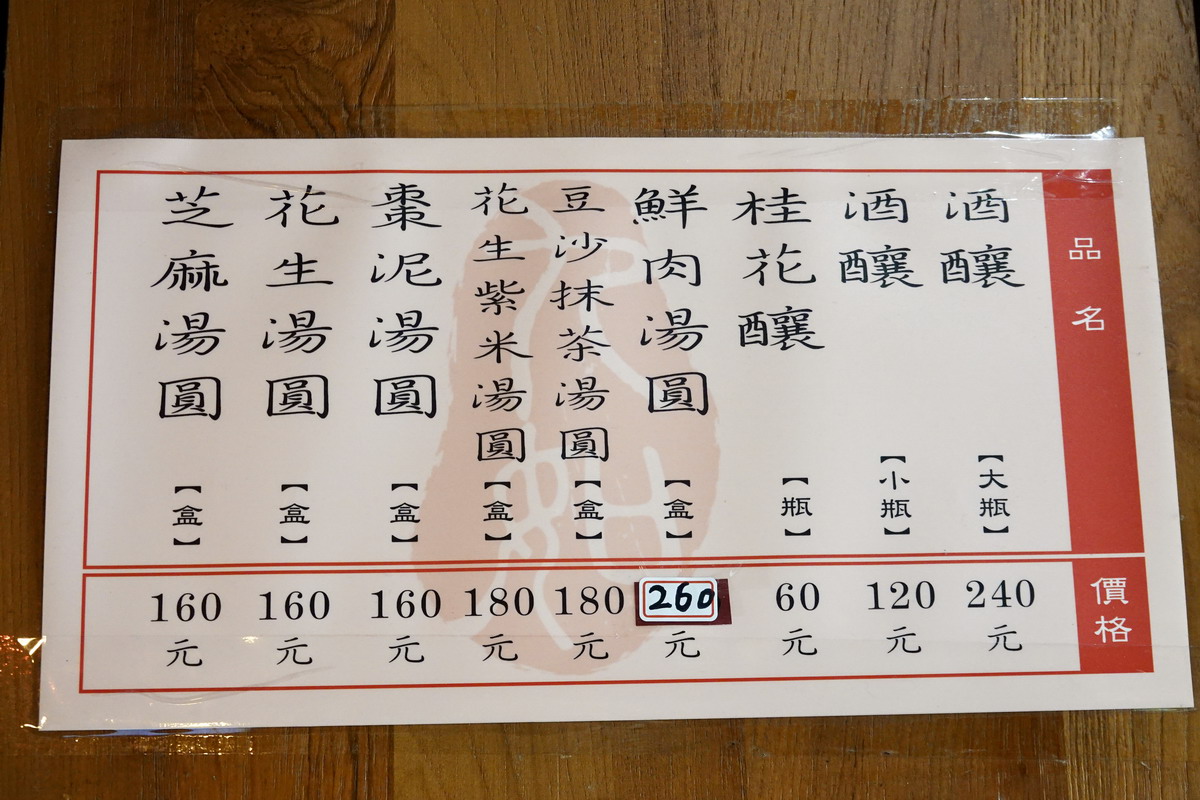 品名
酒釀【大瓶】
酒釀【小瓶】
桂花釀【瓶】
鮮肉湯圓【盒】
豆沙抹茶湯圓【盒】
花生紫米湯圓【盒】
棗泥湯圓【盒】
花生湯圓【盒】
芝麻湯圓【盒】
價格
240元
120元
60元
260元
180元
180元
160元
160元
160元